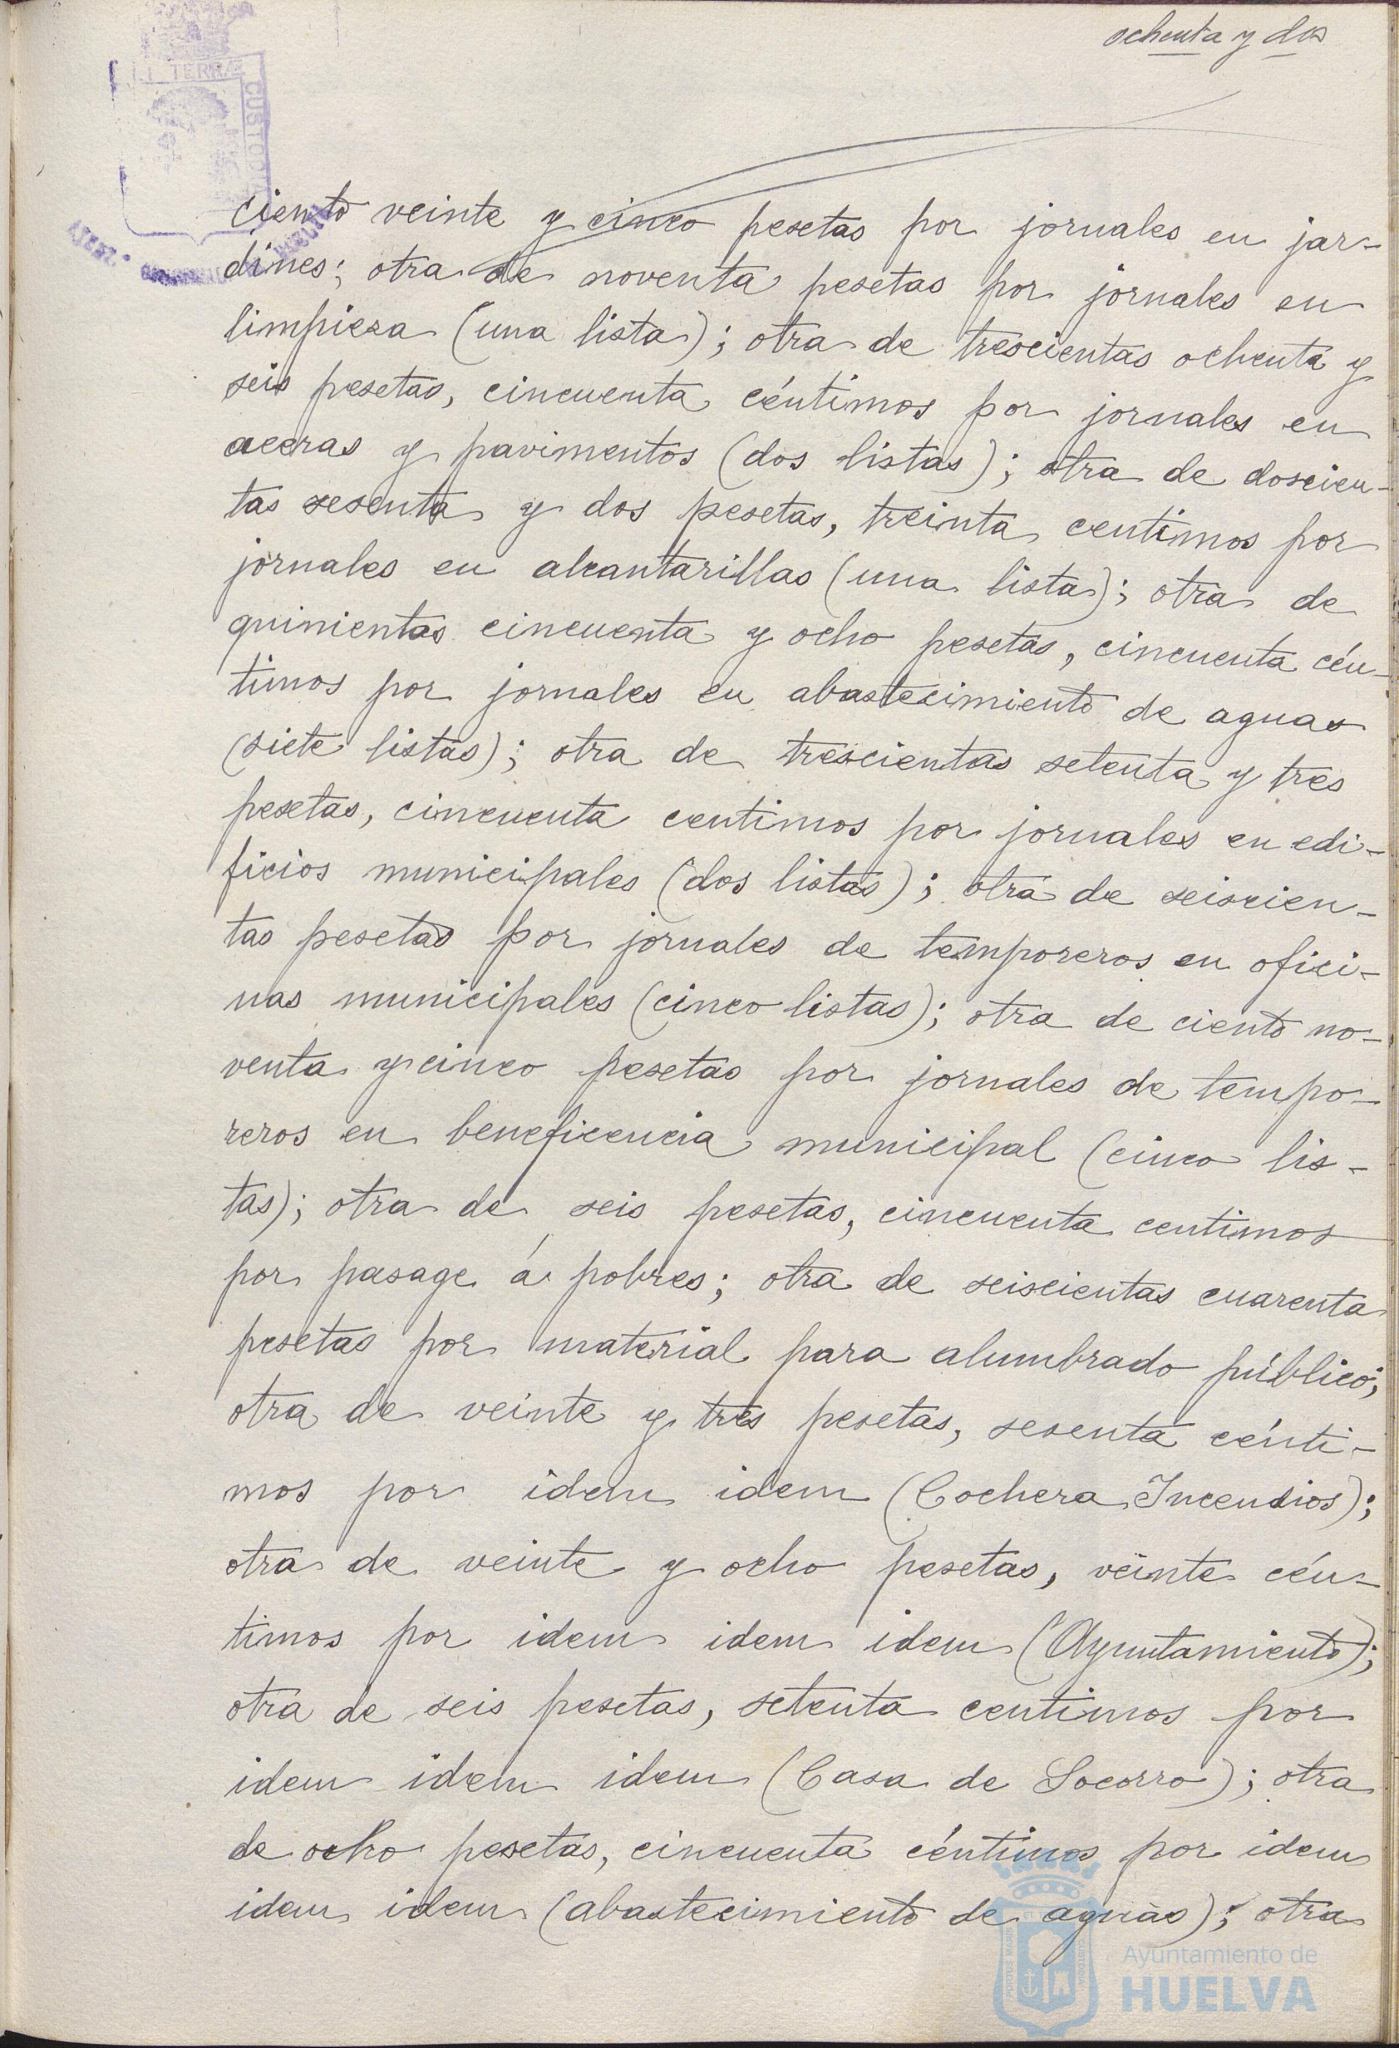 ochenta y dos
ciento veinte y cinco pesetas por jornales en jar-
dines; otra de noventa pesetas por jornales en
limpieza (una lista); otra de trescientas ochenta y
seis pesetas, cincuenta céntimos por jornales en
aceras y pavimentos (dos listas); otra de doscien-
tas sesenta y dos pesetas, treinta centimos por
jornales en alcantarillas (una lista); otra de
quinientas cincuenta y ocho pesetas, cincuenta cén-
timos por jornales en abastecimiento de aguas
(siete listas); otra de trescientas setenta y tres
pesetas, cincuenta centimos por jornales en edi-
ficios municipales (dos listas); otra de seiscien-
tas pesetas por jornales de temporeros en ofici-
nas municipales (cinco listas); otra de ciento no-
venta y cinco pesetas por jornales de tempo-
reros en beneficencia municipal (cinco lis-
tas); otra de seis pesetas, cincuenta centimos
por pasage á pobres; otra de seiscientas cuarenta
pesetas por material para alumbrado público;
otra de veinte y tres pesetas, sesenta cénti-
mos por idem idem (Cochera Incendios);
otra de veinte y ocho pesetas, veinte cén-
timos por idem idem idem (Ayuntamiento);
otra de seis pesetas, setenta centimos por
idem idem idem (Casa de Socorro); otra
de ocho pesetas, cincuenta céntimos por idem
idem idem (abastecimiento de aguas); otra
TERRÆ
CUSTODIA
Ayuntamiento de
HUELVA